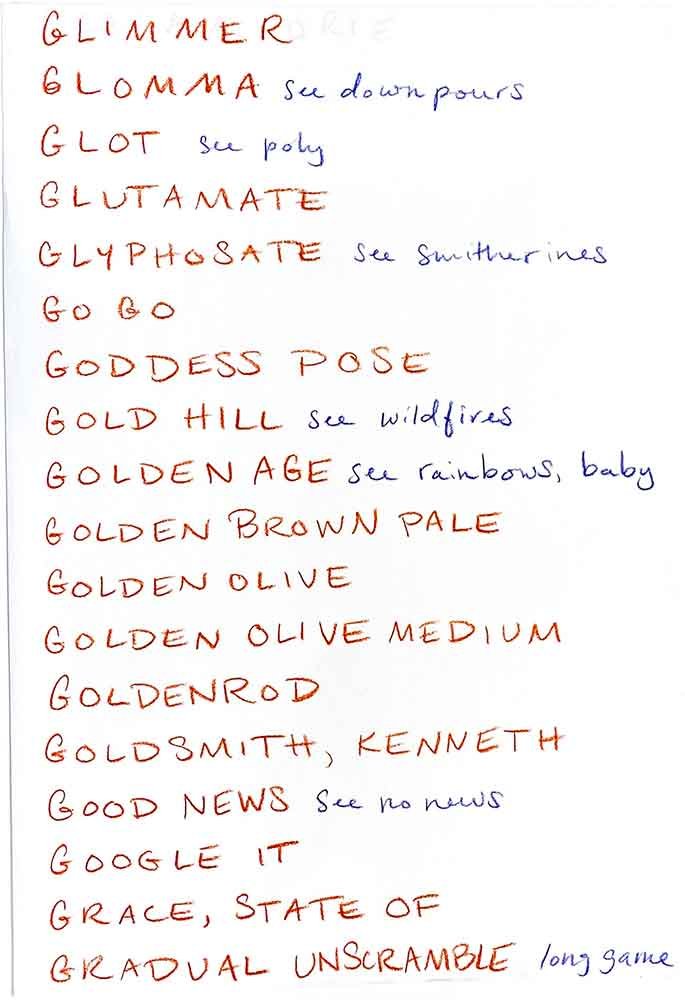 GLIMMER
GLOMMA see downpours
GLOT see poly
GLUTAMATE
GLYPHOSATE see smitherines
GO GO
GODDESS POSE
GOLD HILL see wildfires
GOLDEN AGE see rainbows, baby
GOLDEN BROWN PALE
GOLDEN OLIVE
GOLDEN OLIVE MEDIUM
GOLDENROD
GOLDSMITH, KENNETH
GOOD NEWS see no news
GOOGLE IT
GRACE, STATE OF
GRADUAL UNSCRAMBLE long game